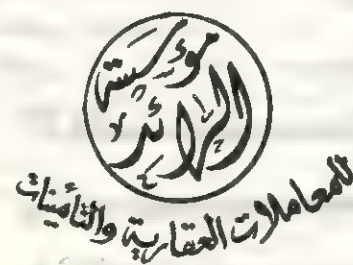 مؤسسة
الرائد
للمعاملات العقارية والتأمينات